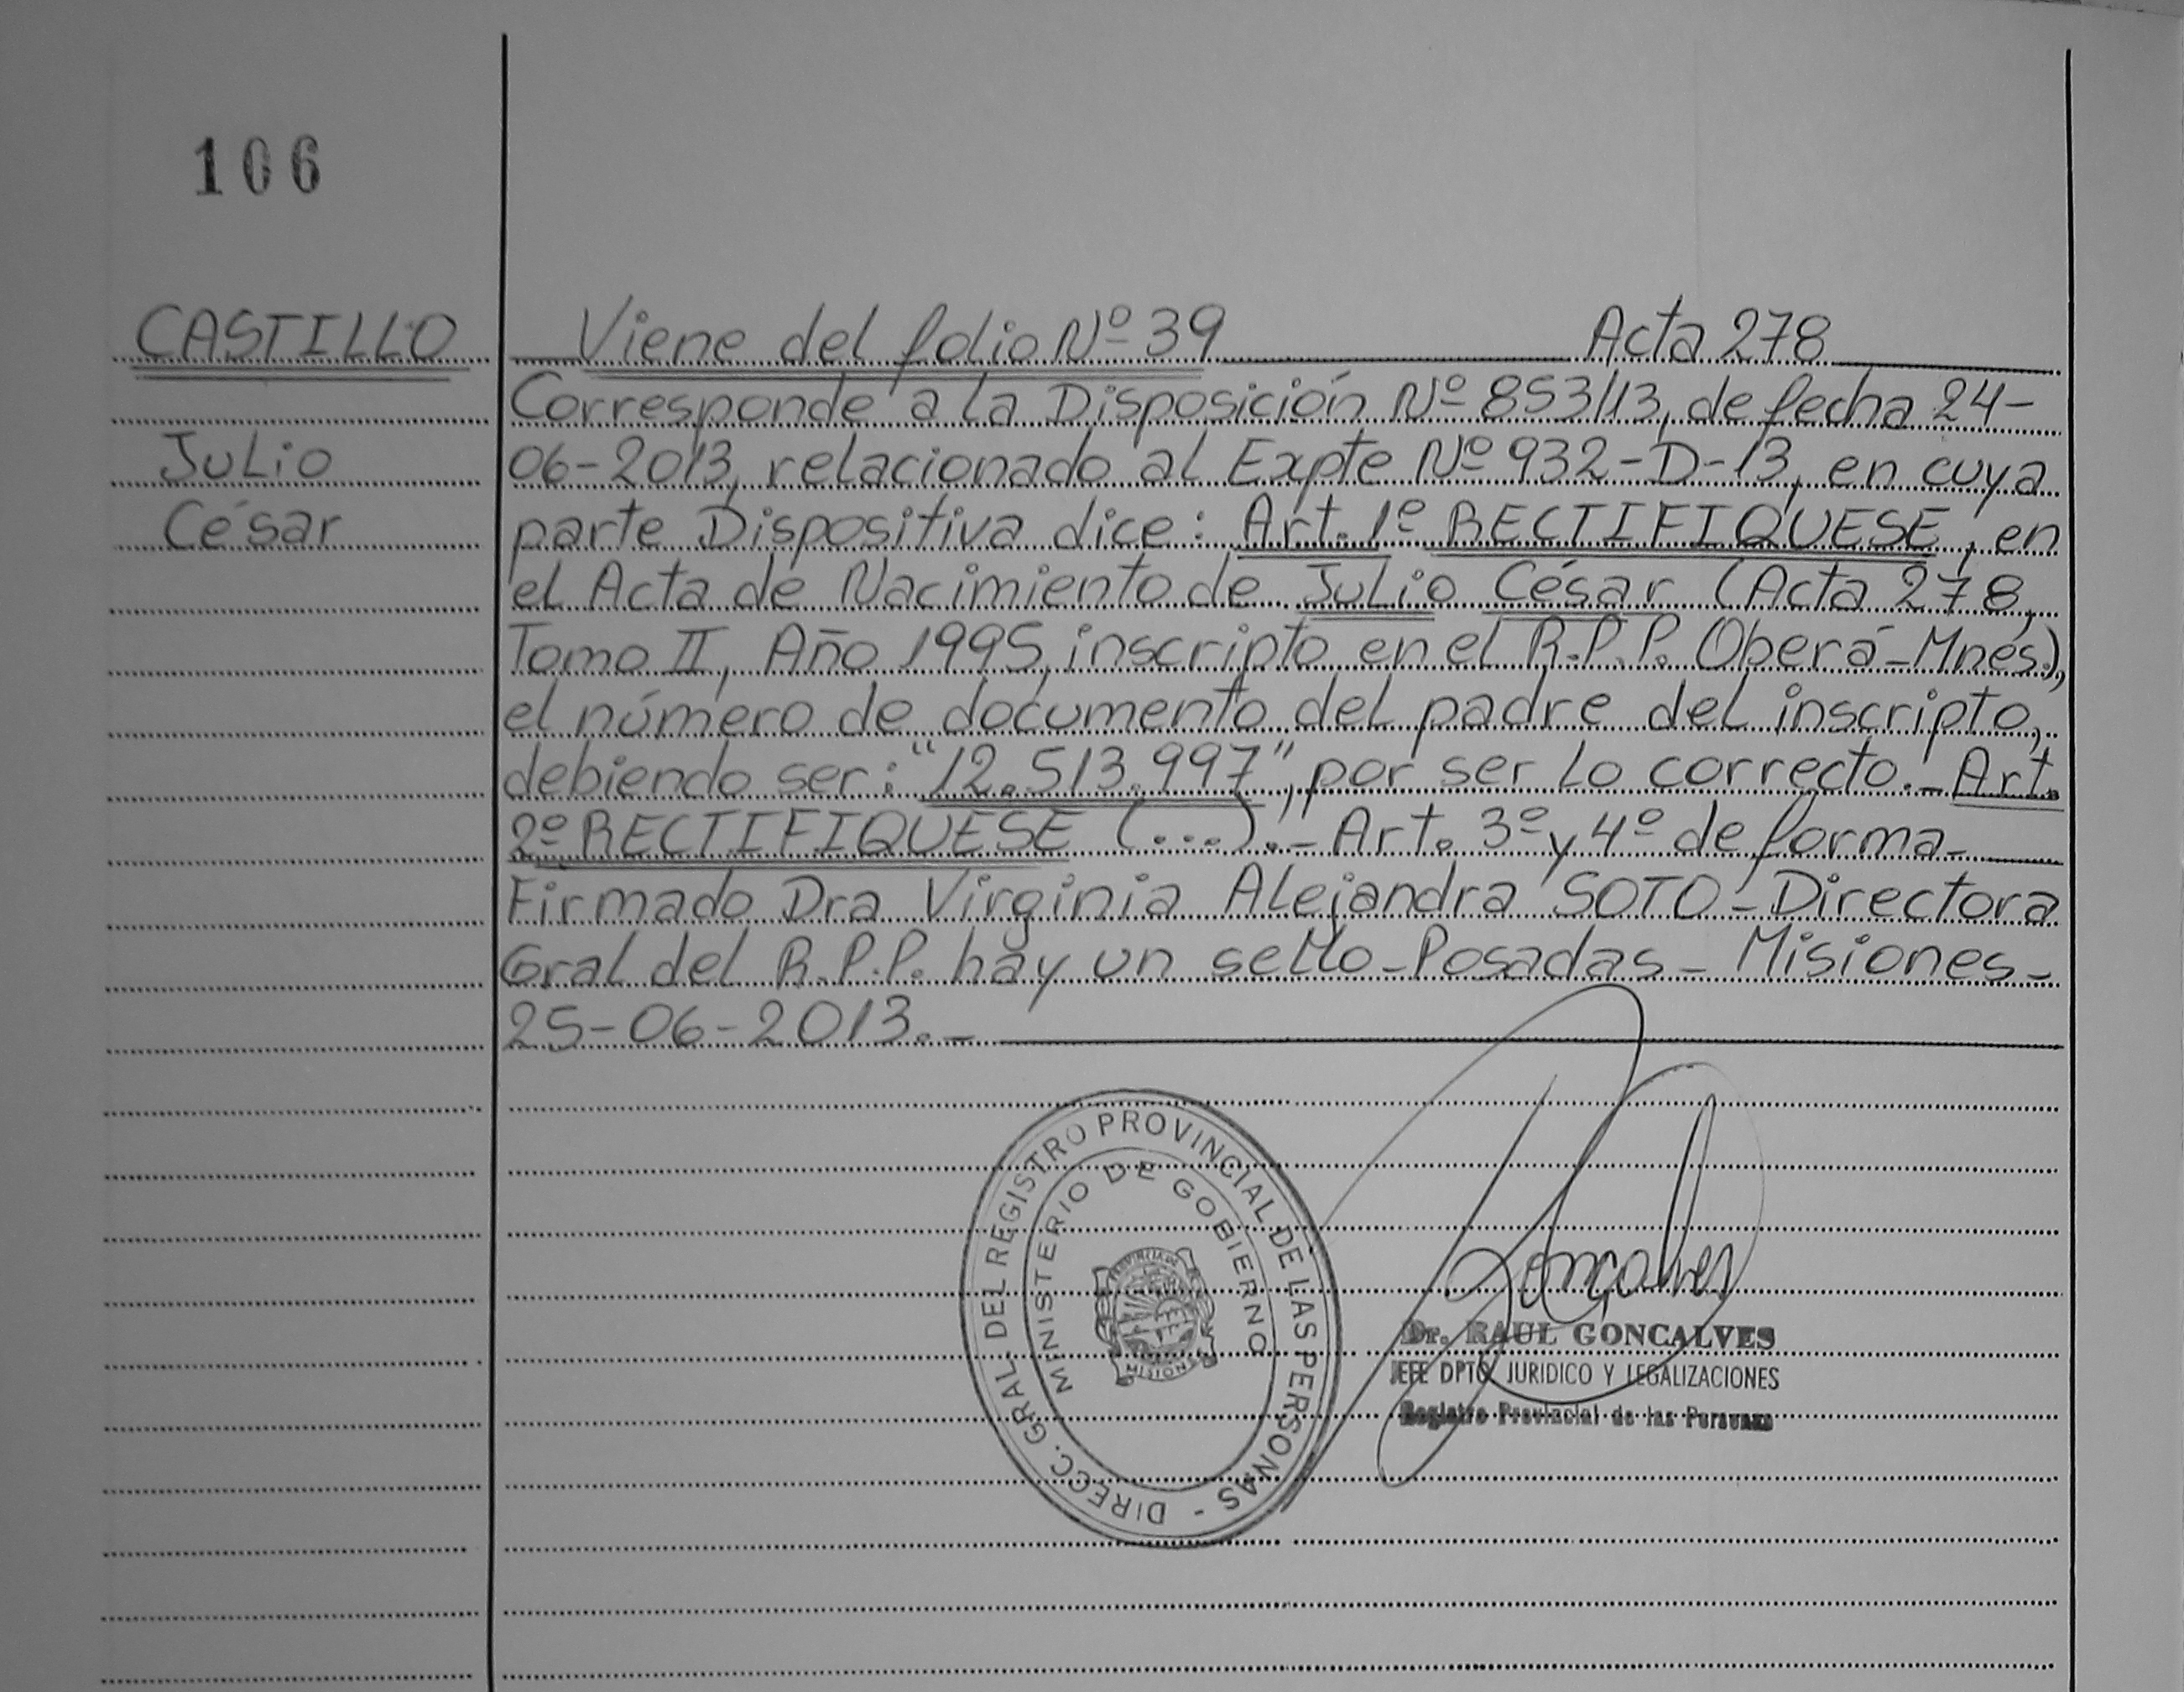 106
CASTILLO
Julio
César
Viene del folio Nº 39 Acta 278
Corresponde a la Disposición Nº 853/13, de fecha 24-
06-2013, relacionado al Expte Nº 932-D-13, en cuya
parte Dispositiva dice: Art. 1º RECTIFIQUESE, en
el Acta de Nacimiento de Julio César (Acta 278,
Tomo II, Año 1995, inscripto en el R.P.P. Oberá-Mnes.),
el número de documento del padre del inscripto,
debiendo ser: "12.513.997", por ser lo correcto.- Art.
2º RECTIFIQUESE (...).- Art. 3º y 4º de forma-
Firmado Dra Virginia Alejandra SOTO-Directora
Gral del R.P.P. hay un sello-Posadas-Misiones-
25-06-2013.-
DIRECC. GRAL. DEL REGISTRO PROVINCIAL DE LAS PERSONAS -
MINISTERIO DE GOBIERNO
PROVINCIA DE
MISIONES
Goncalves
Dr. RAUL GONCALVES
JEFE DPTO JURIDICO Y LEGALIZACIONES
Registro Provincial de las Personas